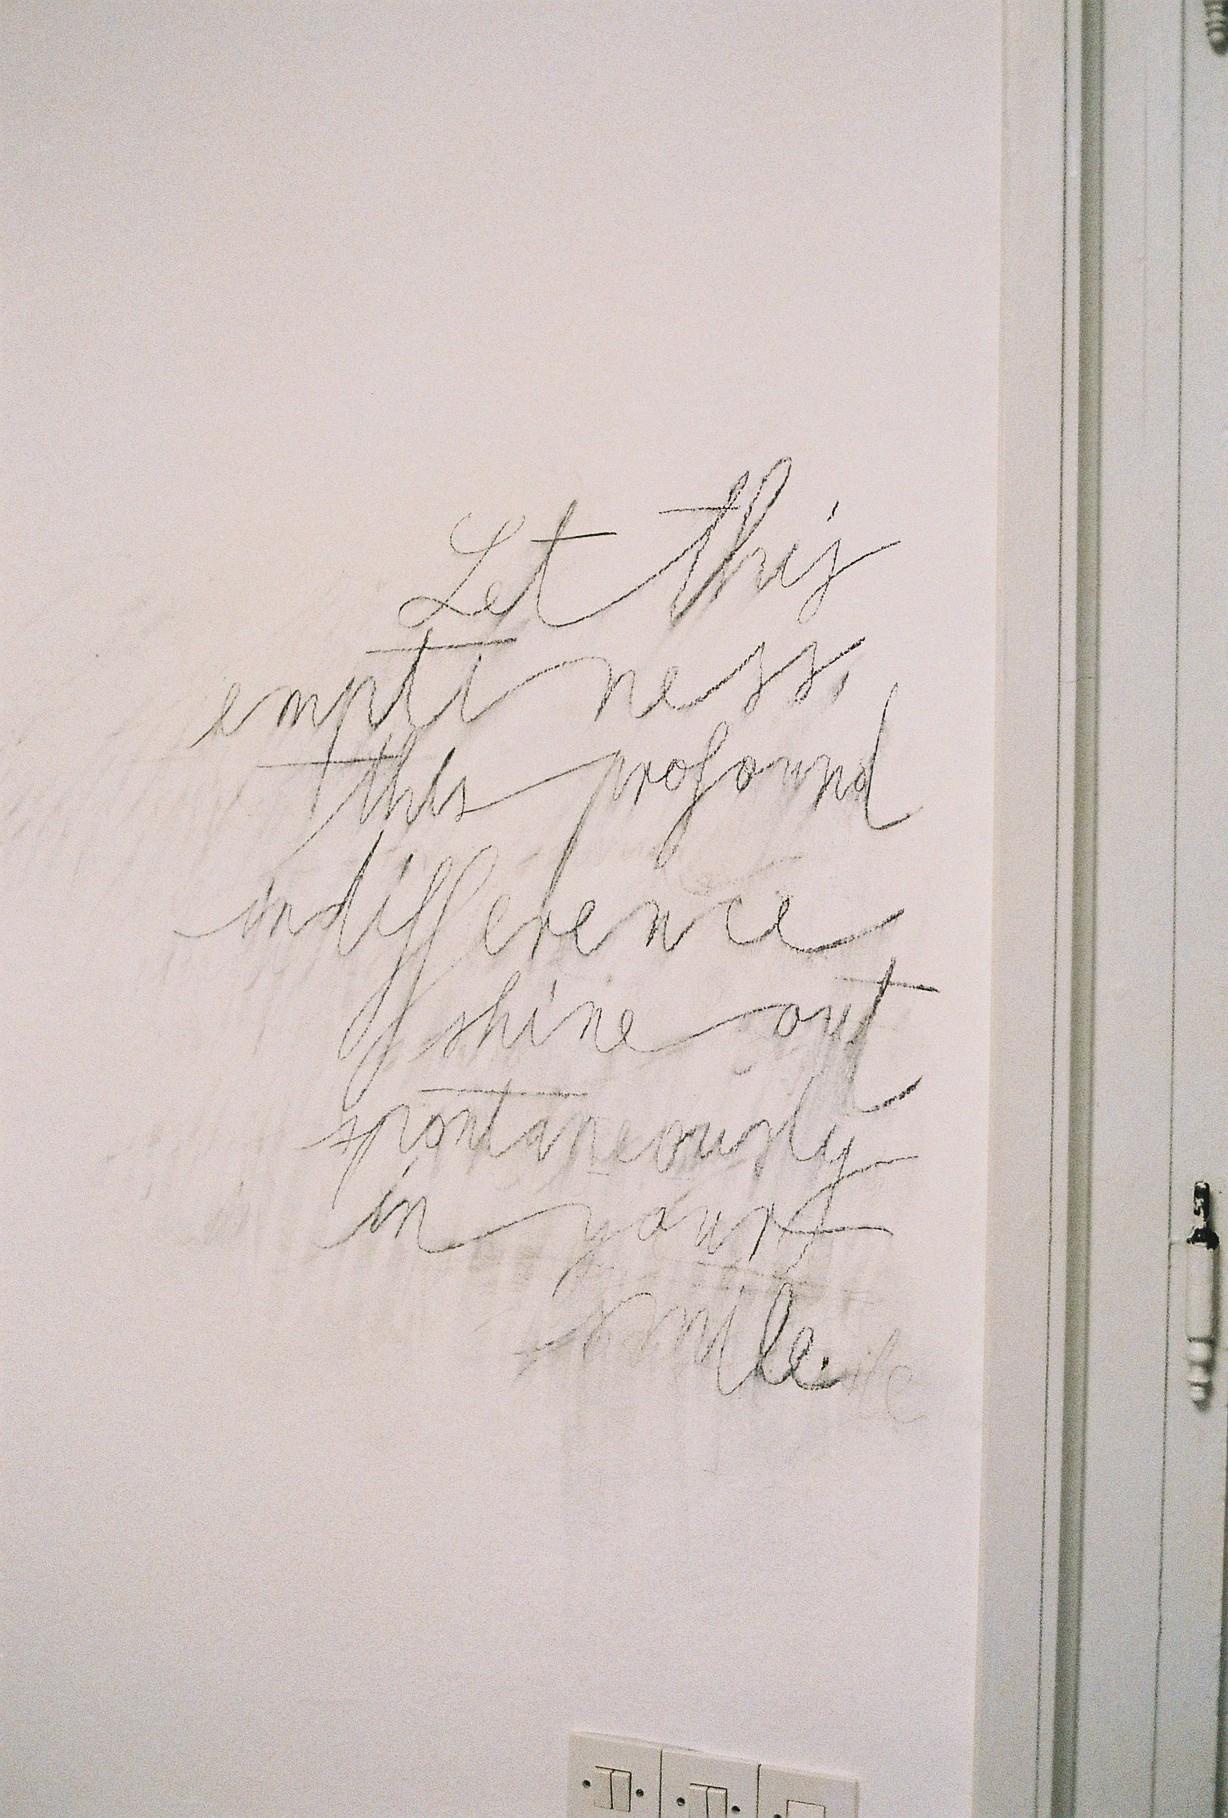 Let this
emptiness,
this profound
indifference
shine out
spontaneously
in your
smile.